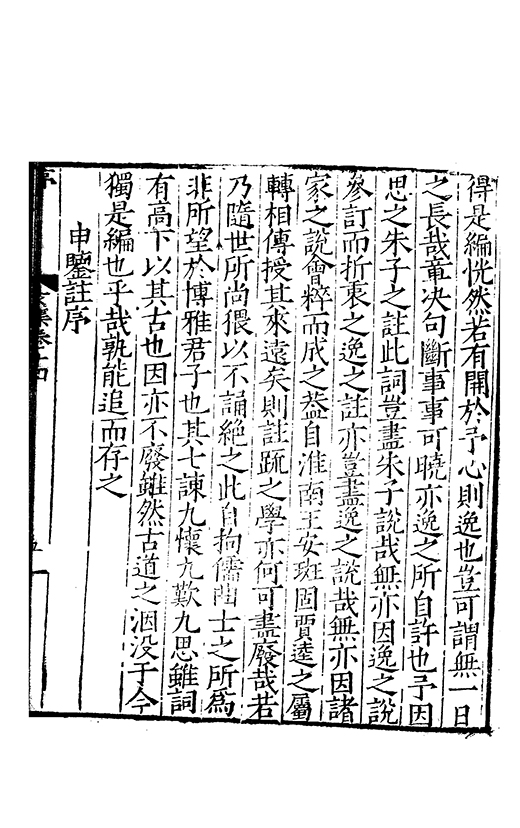 得是編恍然若有開於予心則逸也豈可謂無一日
之長哉章決句斷事事可曉亦逸之所自許也予因
思之朱子之註此詞豈盡朱子說哉無亦因逸之說
參訂而折衷之逸之註亦豈盡逸之說哉無亦因諸
家之說會粹而成之葢自淮南王安班固賈逵之屬
轉相傳授其來遠矣則註䟽之學亦何可盡廢哉若
乃隨世所尚猥以不誦絶之此自拘儒曲士之所為
非所望於博雅君子也其七諫九懷九歎九思雖詞
有高下以其古也因亦不廢雖然古道之湮没于今
獨是編也乎哉孰能追而存之
申鑒註序
序
文集卷十四
五